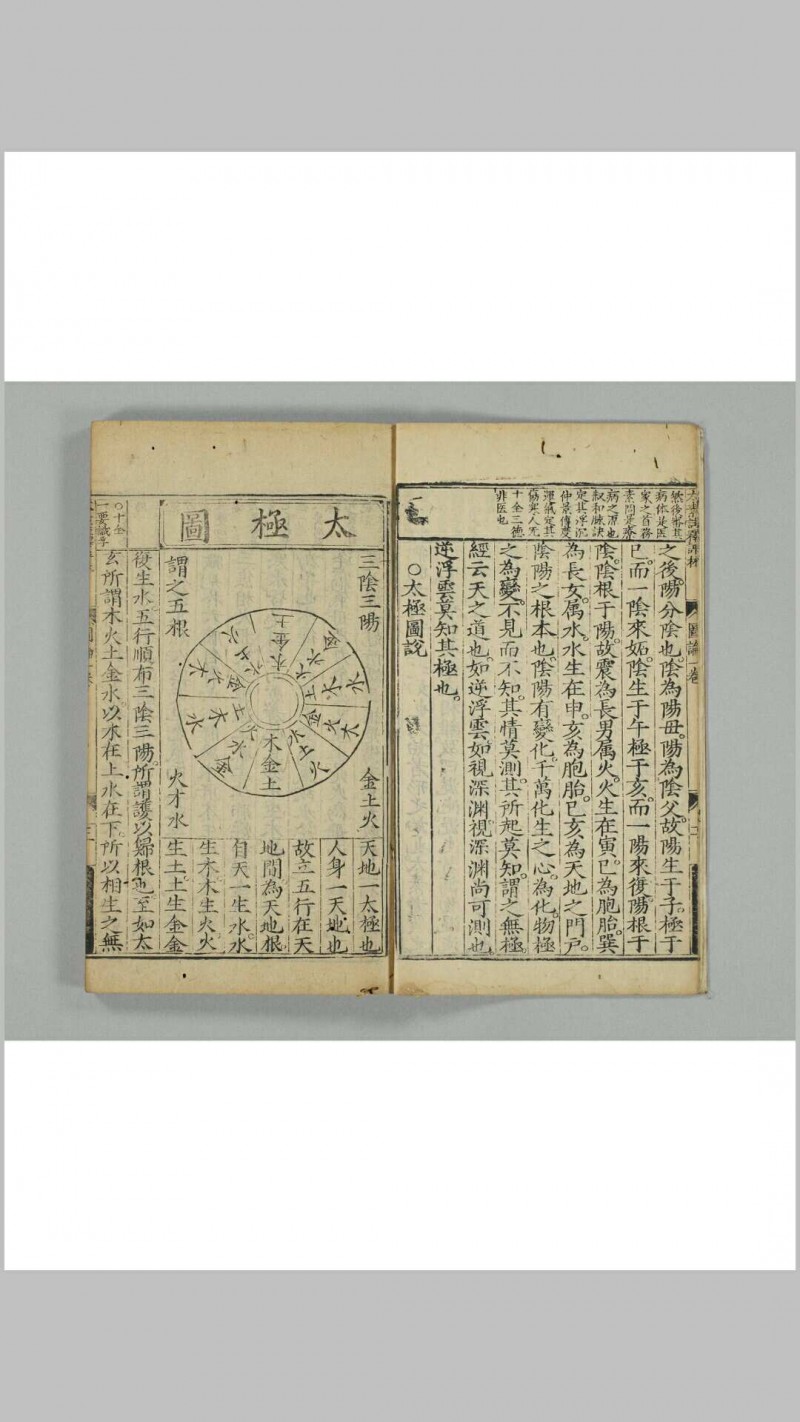 之後。陽分陰也。陰為陽母。陽為陰父。故陽生于子。極于
巳。而一陰來姤。陰生于午。極于亥。而一陽來復。陽根于
陰。陰根于陽。故震為長男。属火。火生在寅。巳為胞胎。巽
為長女。属水。水生在申。亥為胞胎。巳亥為天地之門戶。
陰陽之根本也。陰陽有變化。千萬化生之心。為化。物極
之為變。不見而不知。其情莫測。其所起莫知。謂之無極。
經云天之道也。如逆浮雲如視深渊。視深渊尚可測也。
逆浮雲莫知其極也。
○太極圖說
然後審其
病体是医
家之首務
素問是斎
病之源也
叔和脉訣
定其浮沉
仲景傳変
傷寒人元
十全三德
非医也
圖論一卷
太極圖
三陰三陽
謂之五根
金土火
木金土
火才水
天地一太極也
人身一天地也
故立五行在天
地間為天地根
自天一生水水
生木木生火火
生土土生金金
復生水五行順布三陰三陽。所謂護以歸根也。至如太
玄所謂木火土金水以木在上水在下。所以相生之無
○十全
一要識字